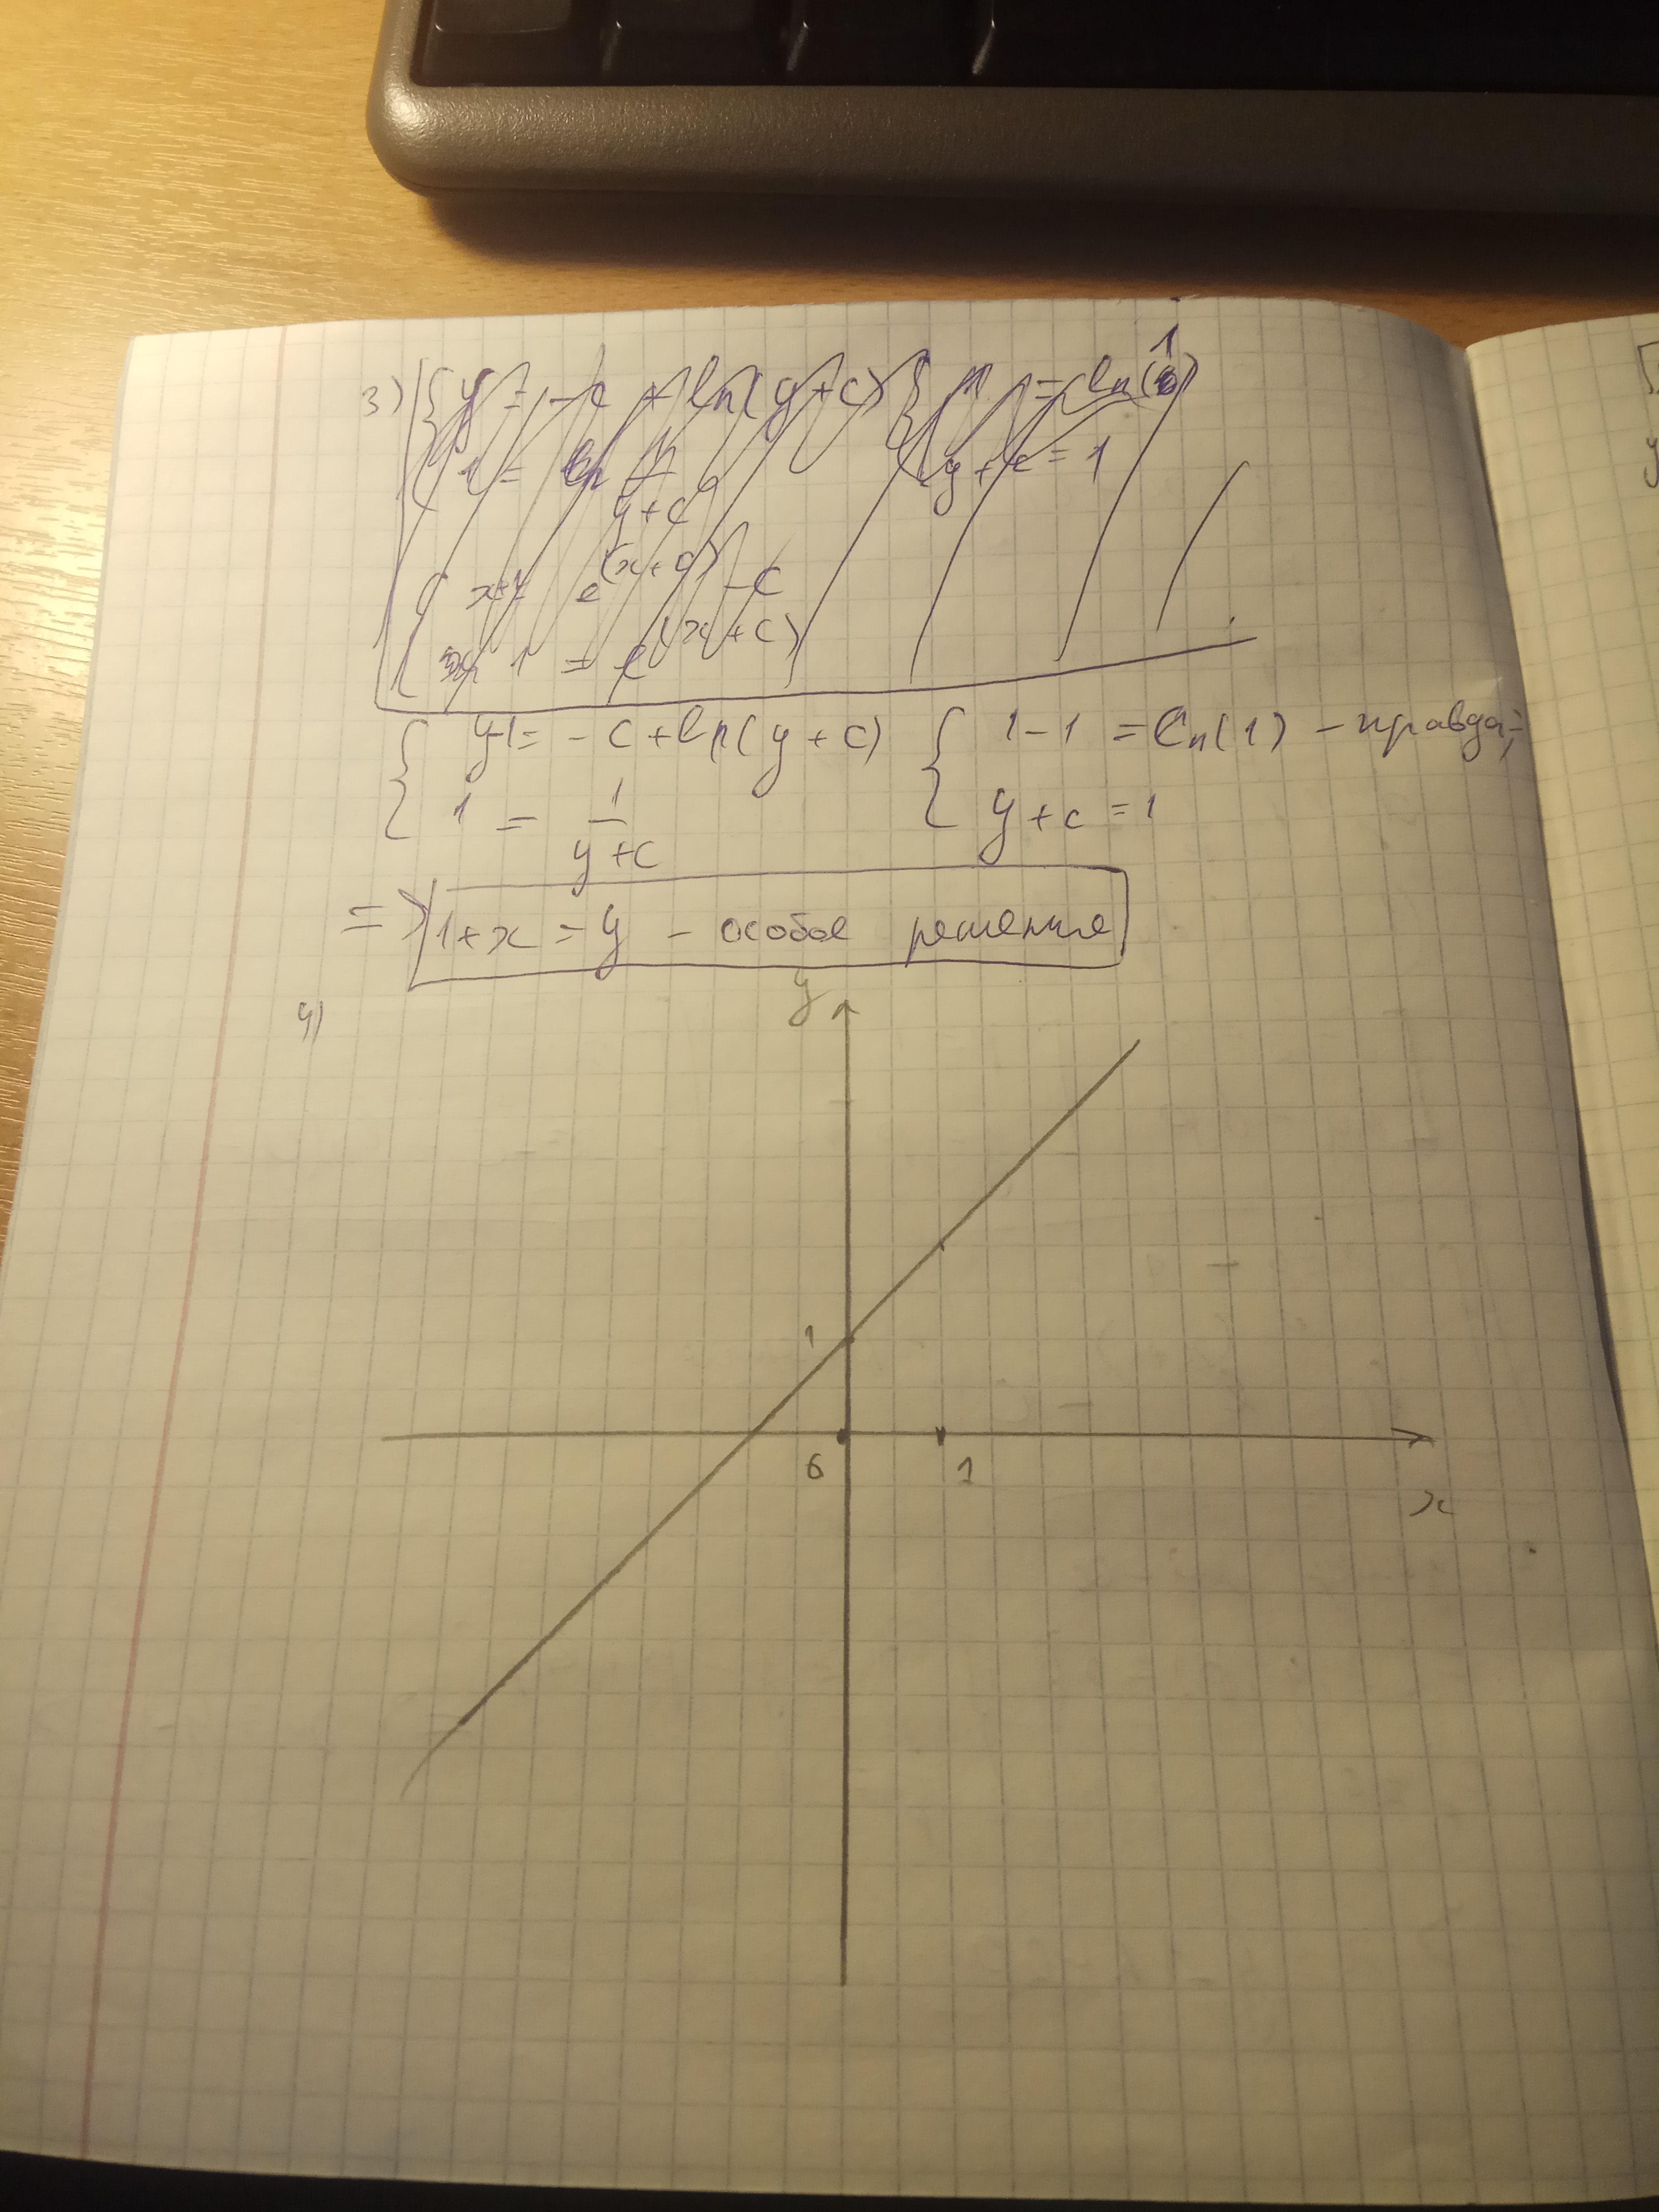 3) { y = -c + ln(y+c) { 1 = ln(1)
1 = y+c y+c = 1
e^(x+c) - c
1 = e^(x+c)
{ y-1 = -c + ln(y+c) { 1-1 = ln(1) - правда;
1 = 1/(y+c) y+c = 1
=> 1+x = y - особое решение
4) y
1
0 1
x